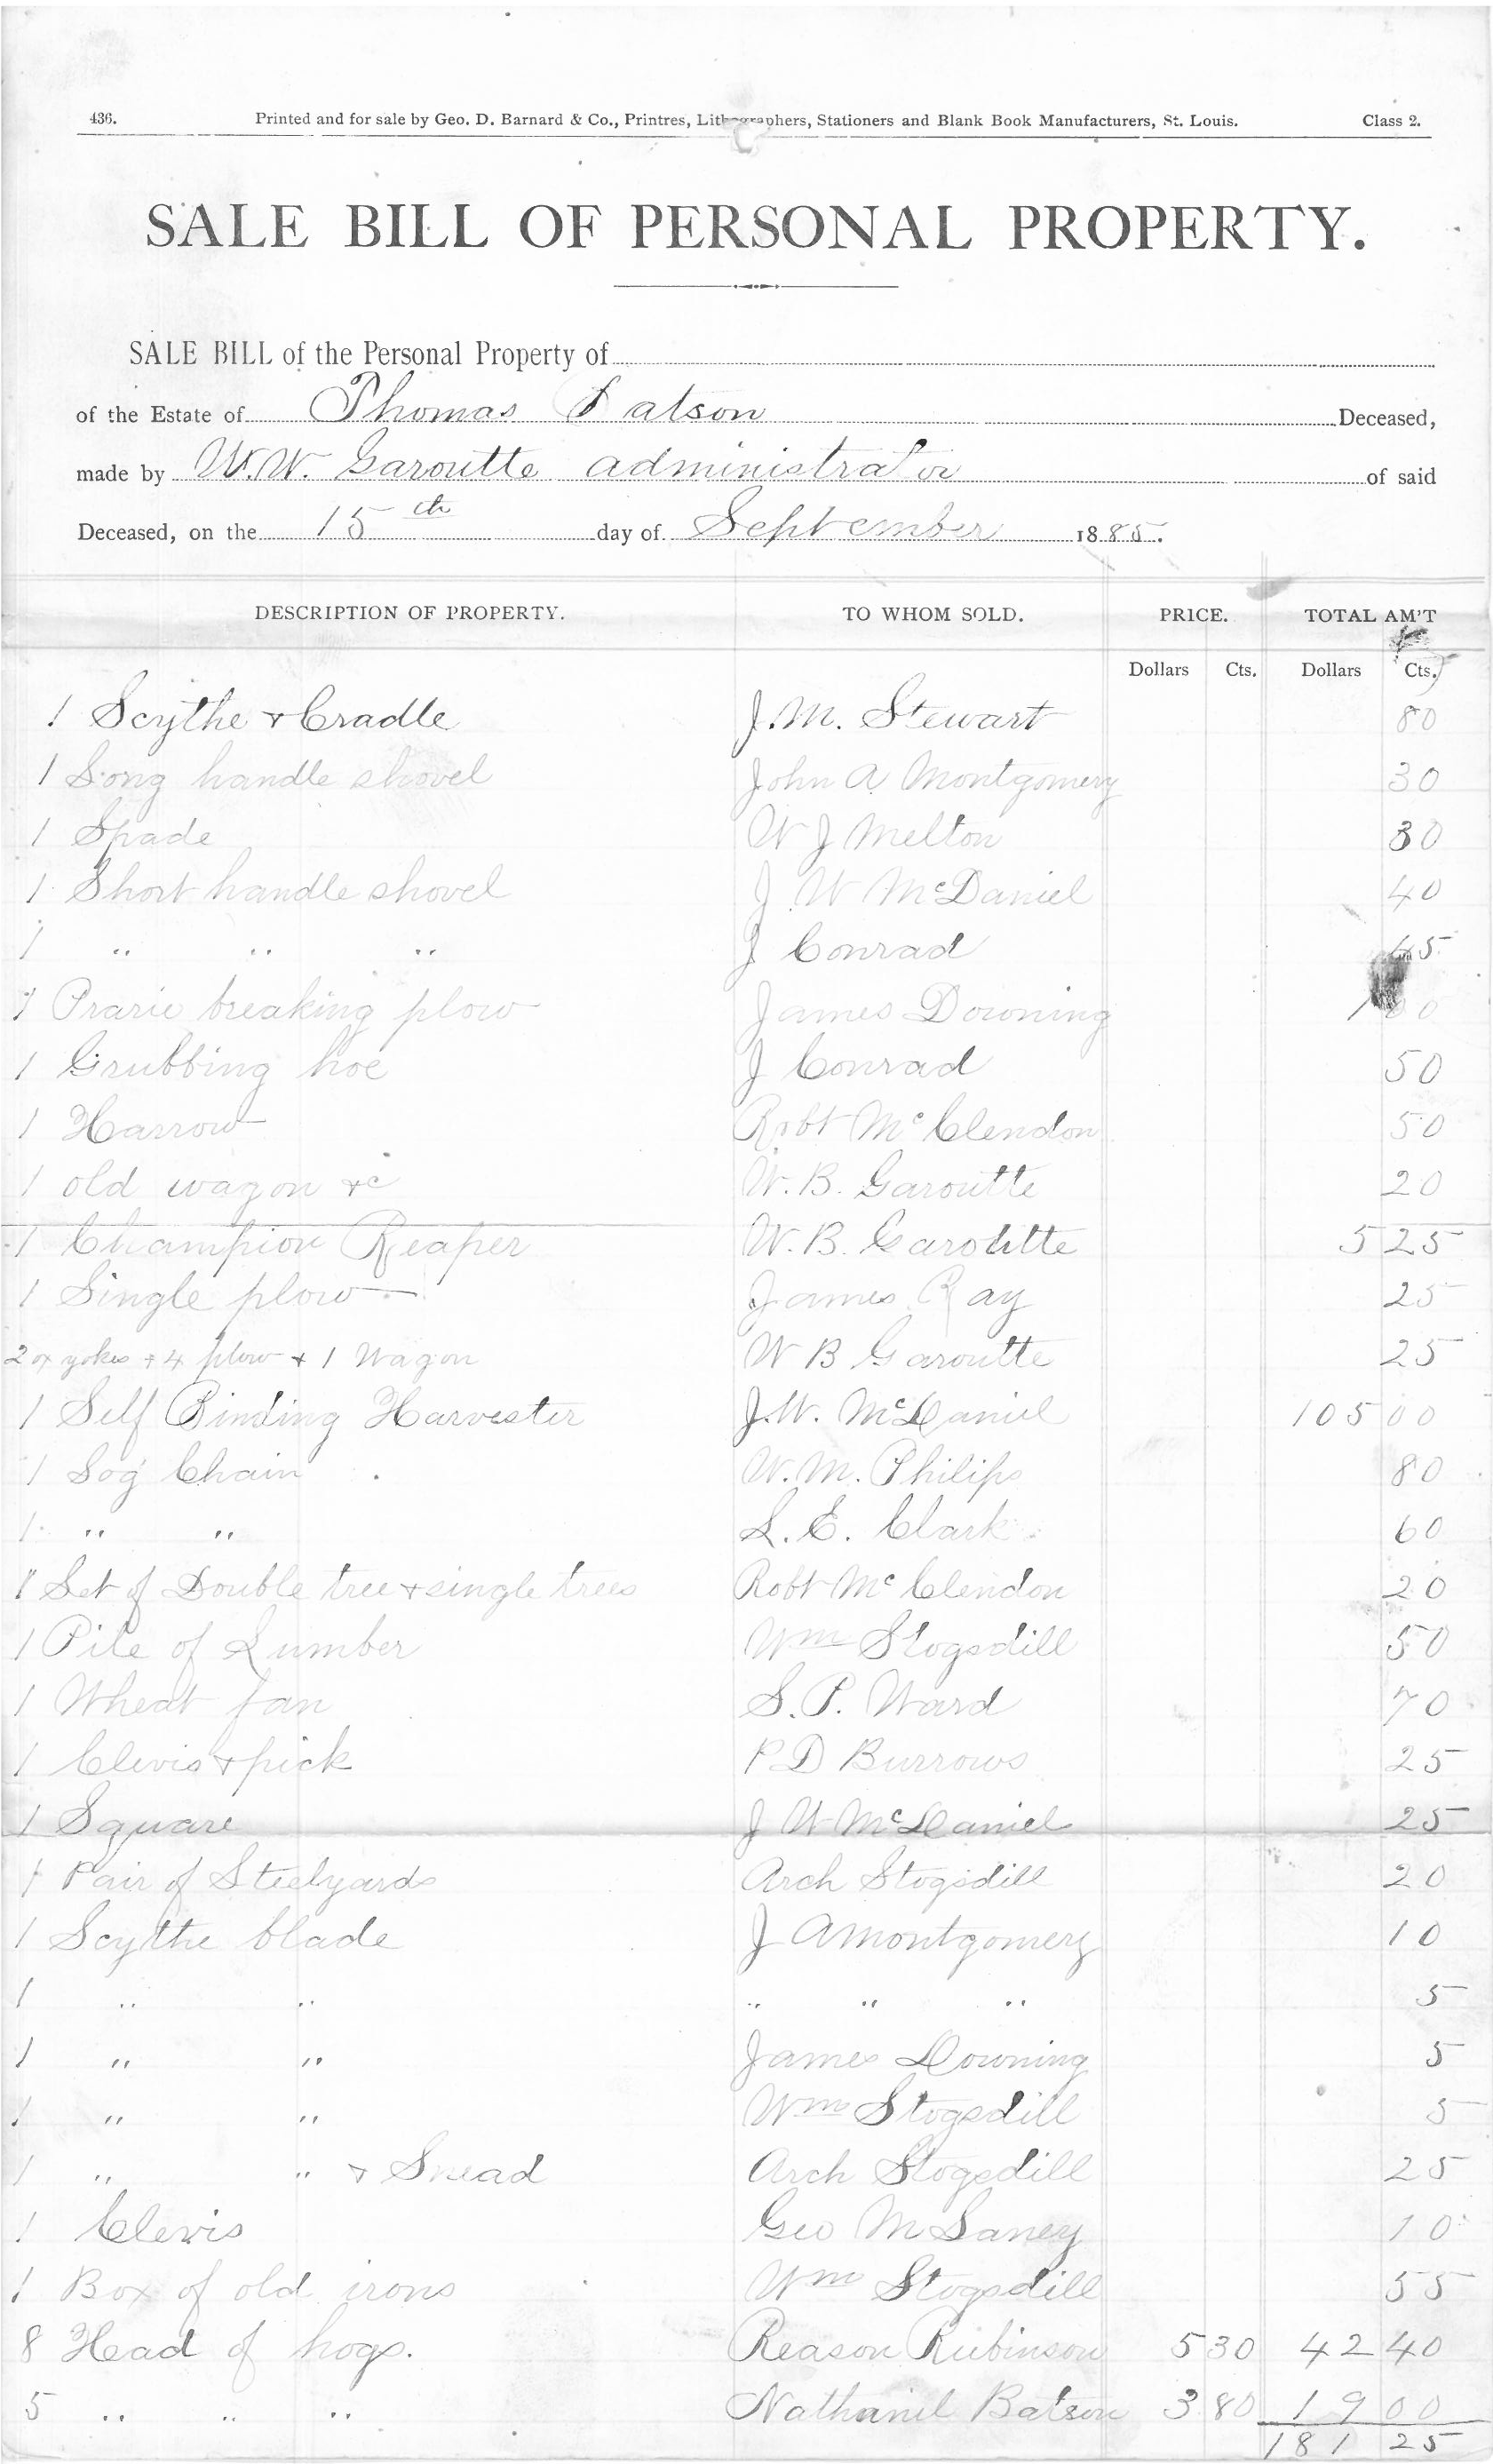 436. Printed and for sale by Geo. D. Barnard & Co., Printres, Lithographers, Stationers and Blank Book Manufacturers, St. Louis. Class 2.
SALE BILL OF PERSONAL PROPERTY.
SALE BILL of the Personal Property of
of the Estate of Thomas Batson Deceased,
made by W.W. Garoutte administrator of said
Deceased, on the 15th day of September 1885.
DESCRIPTION OF PROPERTY. TO WHOM SOLD. PRICE. TOTAL AM'T
Dollars Cts. Dollars Cts.
1 Scythe & Cradle J.M. Stewart 80
1 Long handle shovel John A Montgomery 30
1 Spade W J Melton 30
1 Short handle shovel J W McDaniel 40
1 " " " J Conrad 45
1 Prarie breaking plow James Downing 1 00
1 Grubbing hoe J Conrad 50
1 Harrow Robt McClendon 50
1 old wagon &c W. B. Garoutte 20
1 Champion Reaper W. B. Garoutte 5 25
1 Single plow James Ray 25
2 ox yokes + 4 plow + 1 Wagon W B Garoutte 25
1 Self Binding Harvester J.W. McDaniel 105 00
1 Log Chain W. M. Philips 80
1 " " L. E. Clark 60
1 Set of Double tree & single trees Robt McClendon 20
1 Pile of Lumber Wm Stogsdill 50
1 Wheat fan S. P. Ward 70
1 Clevis & pick P D Burrows 25
1 Square J W McDaniel 25
1 Pair of Steelyards Arch Stogsdill 20
1 Scythe blade J A Montgomery 10
1 " " " " " 5
1 " " James Downing 5
1 " " Wm Stogsdill 5
1 " " & Snead Arch Stogsdill 25
1 Clevis Geo M Laney 10
1 Box of old irons Wm Stogsdill 55
8 Head of hogs. Reason Rubinson 5 30 42 40
5 " " " Nathaniel Batson 3 80 19 00
181 25